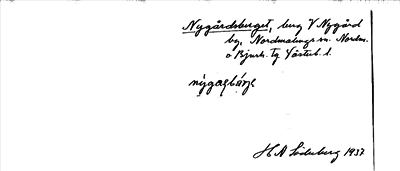 Nygårdsberget, berg V Nygård
by, Nordmalings sn. Nordm.
o Bjurh. Tg Västerb. l.
nýgaɭsbärjɛ
H A Söderberg 1937